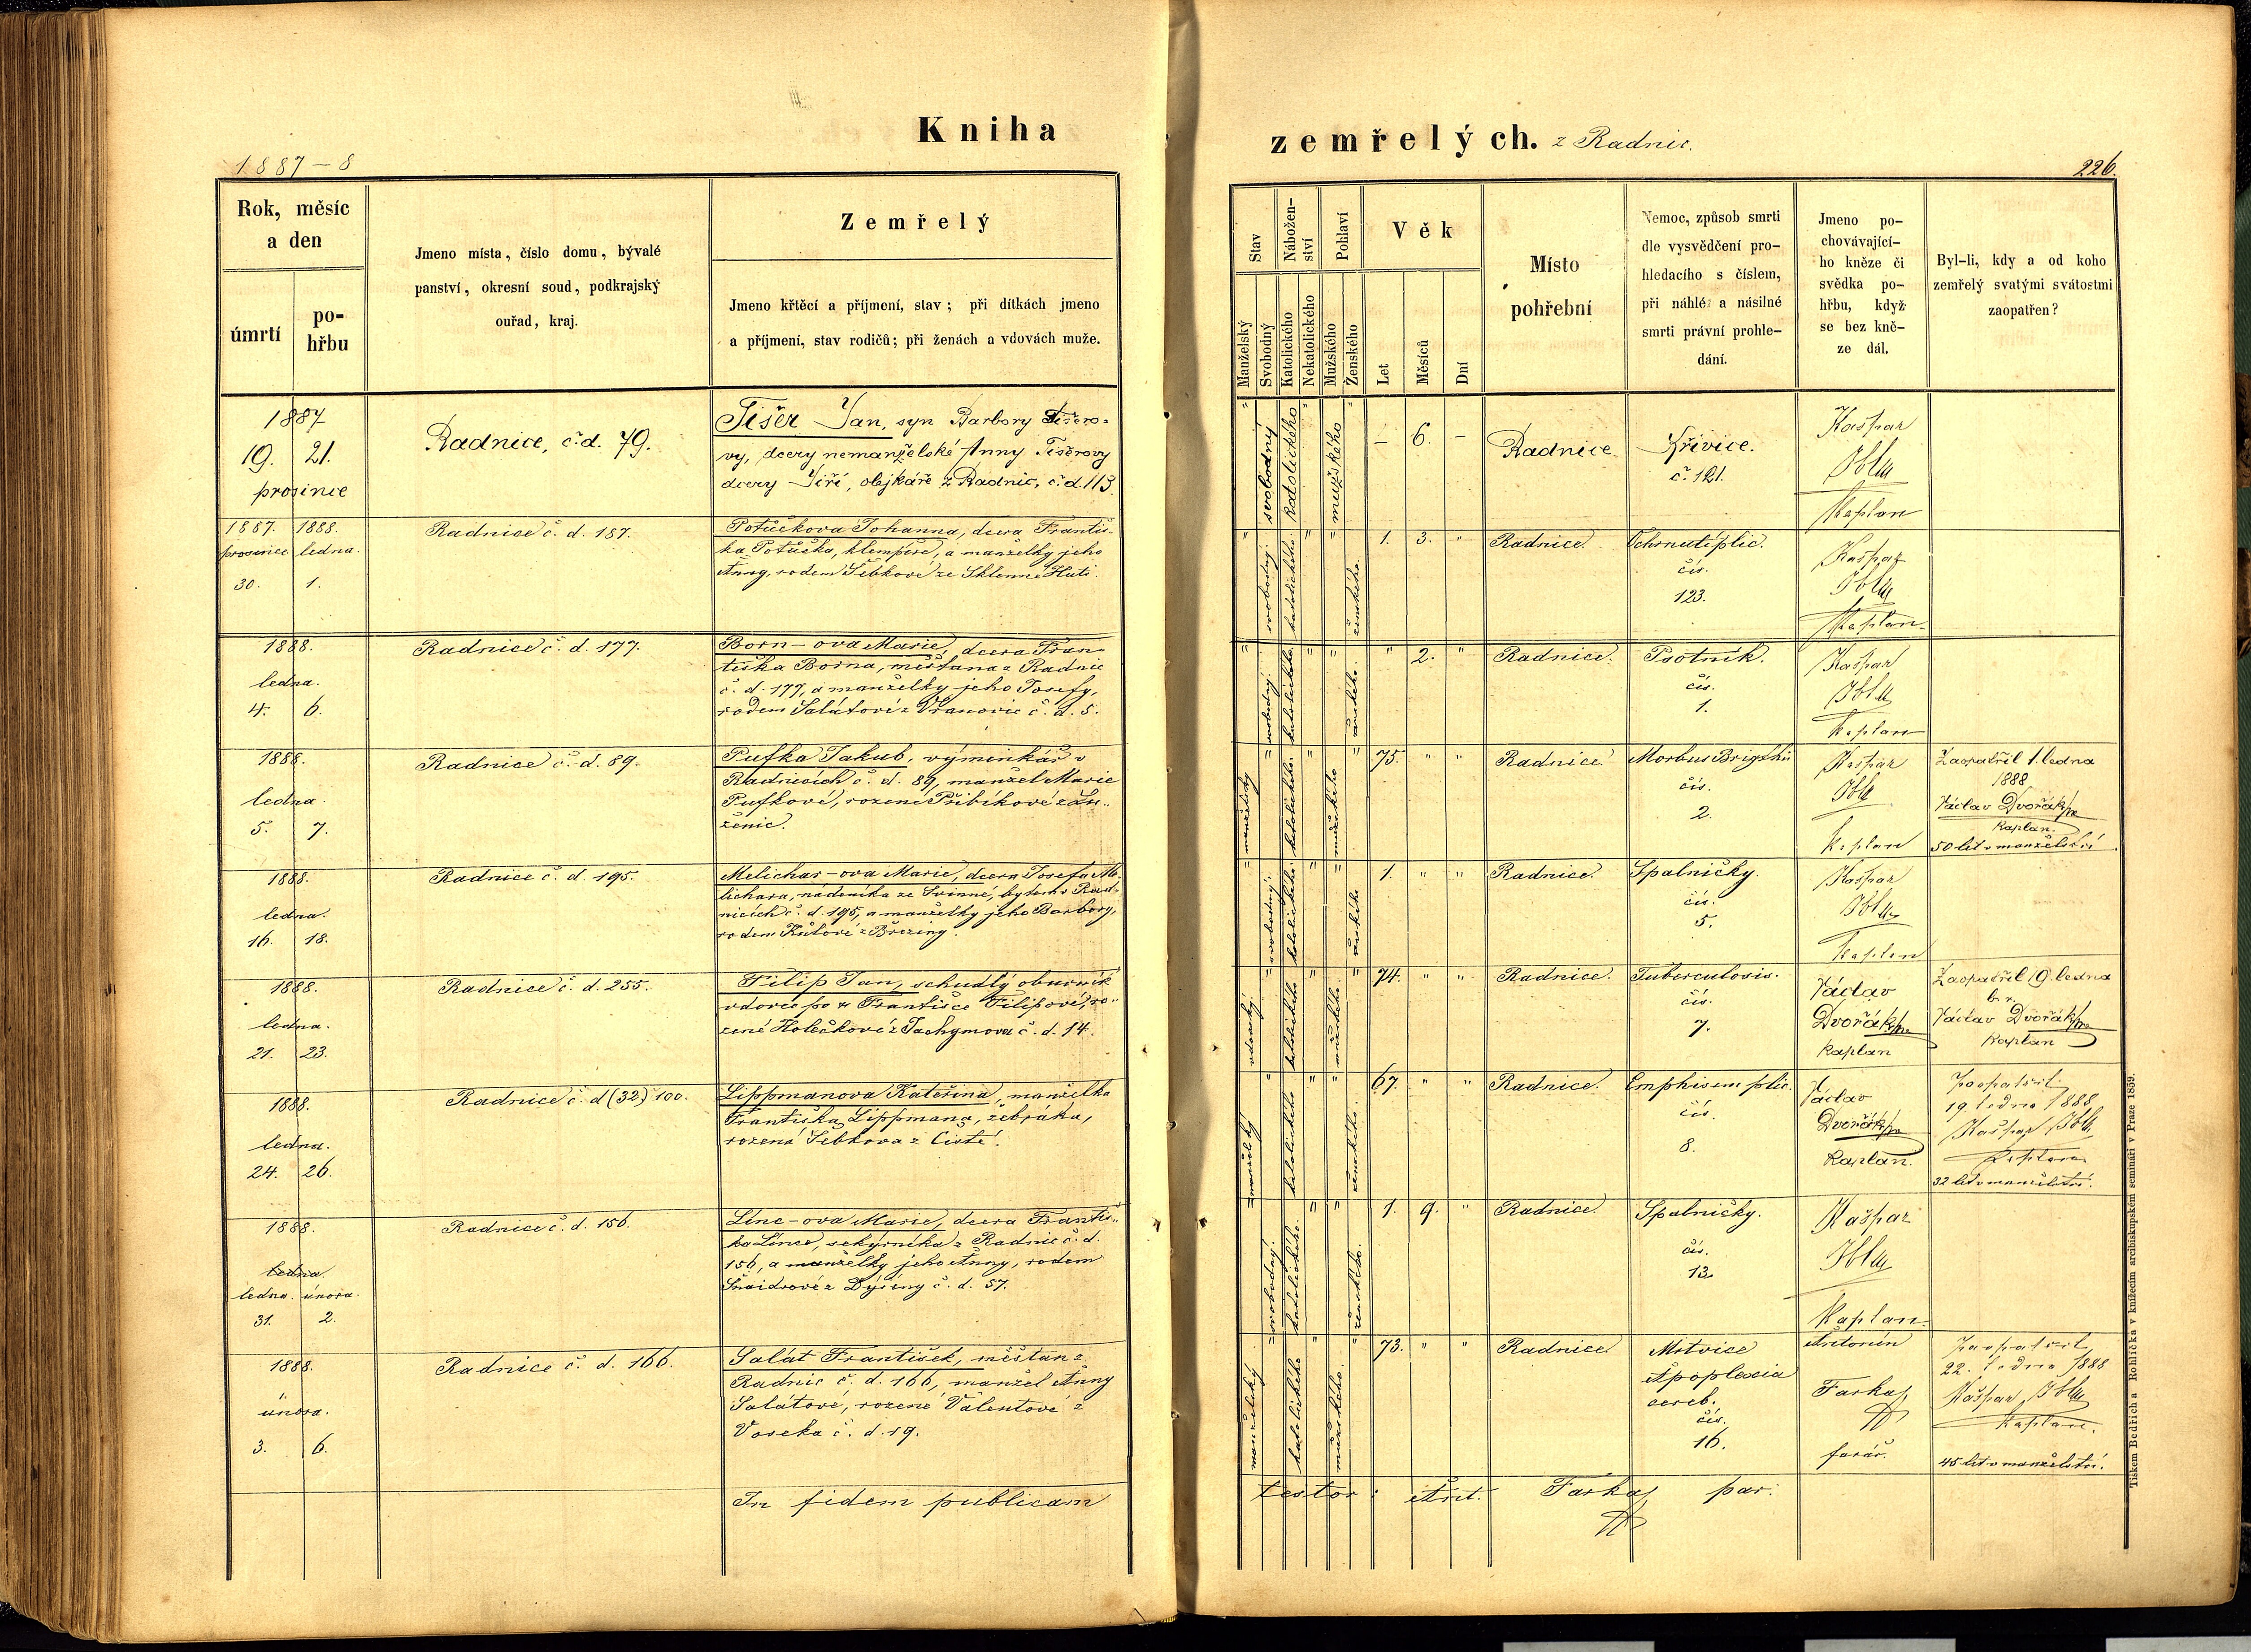 Kniha
1887–8
Rok, měsíc
a den
úmrtí
po-
hřbu
Jmeno místa, číslo domu, bývalé
panství, okresní soud, podkrajský
ouřad, kraj.
Zemřelý
Jmeno křtěcí a příjmení, stav; při dítkách jmeno
a příjmení, stav rodičů; při ženách a vdovách muže.
1887
19. 21.
prosince
Radnice, č.d. 79.
Tišer Jan, syn Barbory Tišero-
vy, dcery nemanželské Anny Tišerovy
dcery Jiří, olejkáře z Radnic, č.d. 113.
1887. 1888.
prosince ledna.
30. 1.
Radnice č. d. 187.
Potůčkova Johanna, dcera Františ-
ka Potůčka, klempíře, a manželky jeho
Anny, rodem Šebkové ze Sklenné Huti.
1888.
ledna.
4. 6.
Radnice č. d. 177.
Born-ova Marie, dcera Fran-
tiška Borna, měšťana z Radnic
č. d. 177, a manželky jeho Josefy,
rodem Salátové z Vranovic č. d. 5.
1888.
ledna.
5. 7.
Radnice č. d. 89.
Pufka Jakub, výminkář v
Radnicích č. d. 89, manžel Marie
Pufkové, rozené Přibíkové z
ženic.
1888.
ledna.
16. 18.
Radnice č. d. 195.
Melichar-ova Marie, dcera Josefa Me-
lichara, nádeníka ze Svinné, bytem v Rad-
nicích č. d. 195, a manželky jeho Barbory,
rodem z Březiny.
1888.
ledna.
21. 23.
Radnice č. d. 255.
Filip Jan, schudlý obuvník
vdovec po Františce Filipové, ro-
zené Holečkové z Jachymova č. d. 14.
1888.
ledna.
24. 26.
Radnice č. d (32) 100.
Lippmanova Kateřina, manželka
Františka Lippmana, žebráka,
rozená Šebkova z Čisté.
1888.
ledna.
ledna. února.
31. 2.
Radnice č. d. 156.
Linc-ova Marie, dcera Františ-
ka Lince, sekyrníka z Radnic č. d.
156, a manželky jeho Anny, rodem
Šnaidrové z Dýšiny č. d. 57.
1888.
února.
3. 6.
Radnice č. d. 166.
Salát František, měšťan z
Radnic č. d. 166, manžel Anny
Salátové, rozené Valentové z
Voseka č. d. 19.
In fidem publicam
zemřelých. z Radnic.
226.
Stav
Nábožen-
ství
Pohlaví
Věk
Manželský
Svobodný
Katolického
Nekatolického
Mužského
Ženského
Let
Měsíců
Dní
Místo
pohřební
Nemoc, způsob smrti
dle vysvědčení pro-
hledacího s číslem,
při náhlé a násilné
smrti právní prohle-
dání.
Jmeno po-
chovávající-
ho kněze či
svědka po-
hřbu, když
se bez kně-
ze dál.
Byl-li, kdy a od koho
zemřelý svatými svátostmi
zaopatřen?
" svobodný katolického " mužského " – 6. – Radnice Křivice.
č. 121.
Kašpar
Obla
Kaplan
" svobodný. katolického " " ženského. 1. 3. " Radnice. Ochrnutí plic.
čís.
123.
Kašpar
Obla
Kaplan.
" svobodný. katolického. " " ženského. " 2. " Radnice. Psotník.
čís.
1.
Kašpar
Obla
Kaplan
manželský " katolického. " mužského " 75. " " Radnice. Morbus Brigthii
čís.
2.
Kašpar
Obla
Kaplan
Zaopatřil 1. ledna
1888
Václav Dvořák
Kaplan.
50 let v manželství.
" svobodný. katolického. " " ženského 1. " " Radnice. Spalničky.
čís.
5.
Kašpar
Obla
Kaplan
vdovský. " katolického " mužského. " 74. " " Radnice. Tuberculosis.
čís.
7.
Václav
Dvořák
Kaplan
Zaopatřil 19. ledna
b. r.
Václav Dvořák
Kaplan
manželský " katolického " " ženského. 67. " " Radnice. Emphisem plic.
čís.
8.
Václav
Dvořák
Kaplan.
Zaopatřil
19. ledna 1888
Kašpar Obla
Kaplan
32 let v manželství.
" svobodný. katolického. " " ženského. 1. 9. " Radnice Spalničky.
čís.
12.
Kašpar
Obla
Kaplan.
manželský " katolického " mužského. " 73. " " Radnice Mrtvice
Apoplexia
cereb.
čís.
16.
Antonín
Farka
farář.
Zaopatřil
22. ledna 1888
Kašpar Obla
Kaplan.
45 let v manželství.
testor: Ant. Farka par:
Tiskem Bedřicha Rohlíčka v knížecím arcibiskupském semináři v Praze 1859.